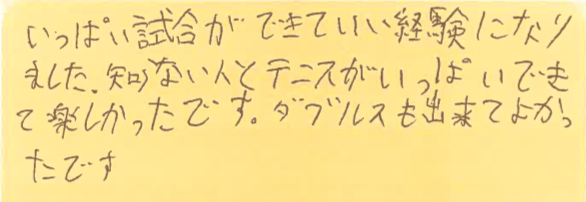 いっぱい試合ができていい経験になり
ました。知らない人とテニスがいっぱいでき
て楽しかったです。ダブルスも出来てよかっ
たです